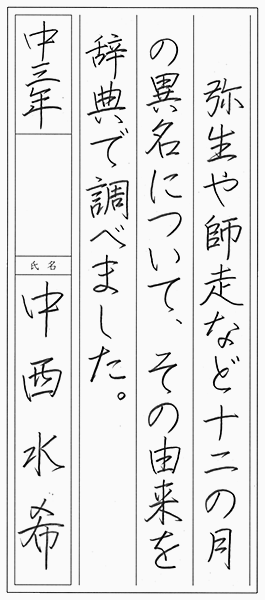 弥生や師走など十二の月
の異名について、その由来を
辞典で調べました。
中三年
氏名
中西水希